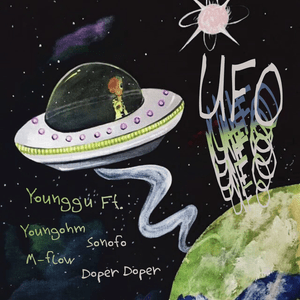 UFO
Younggu Ft.
Youngohm Sonofo
M-flow Doper Doper